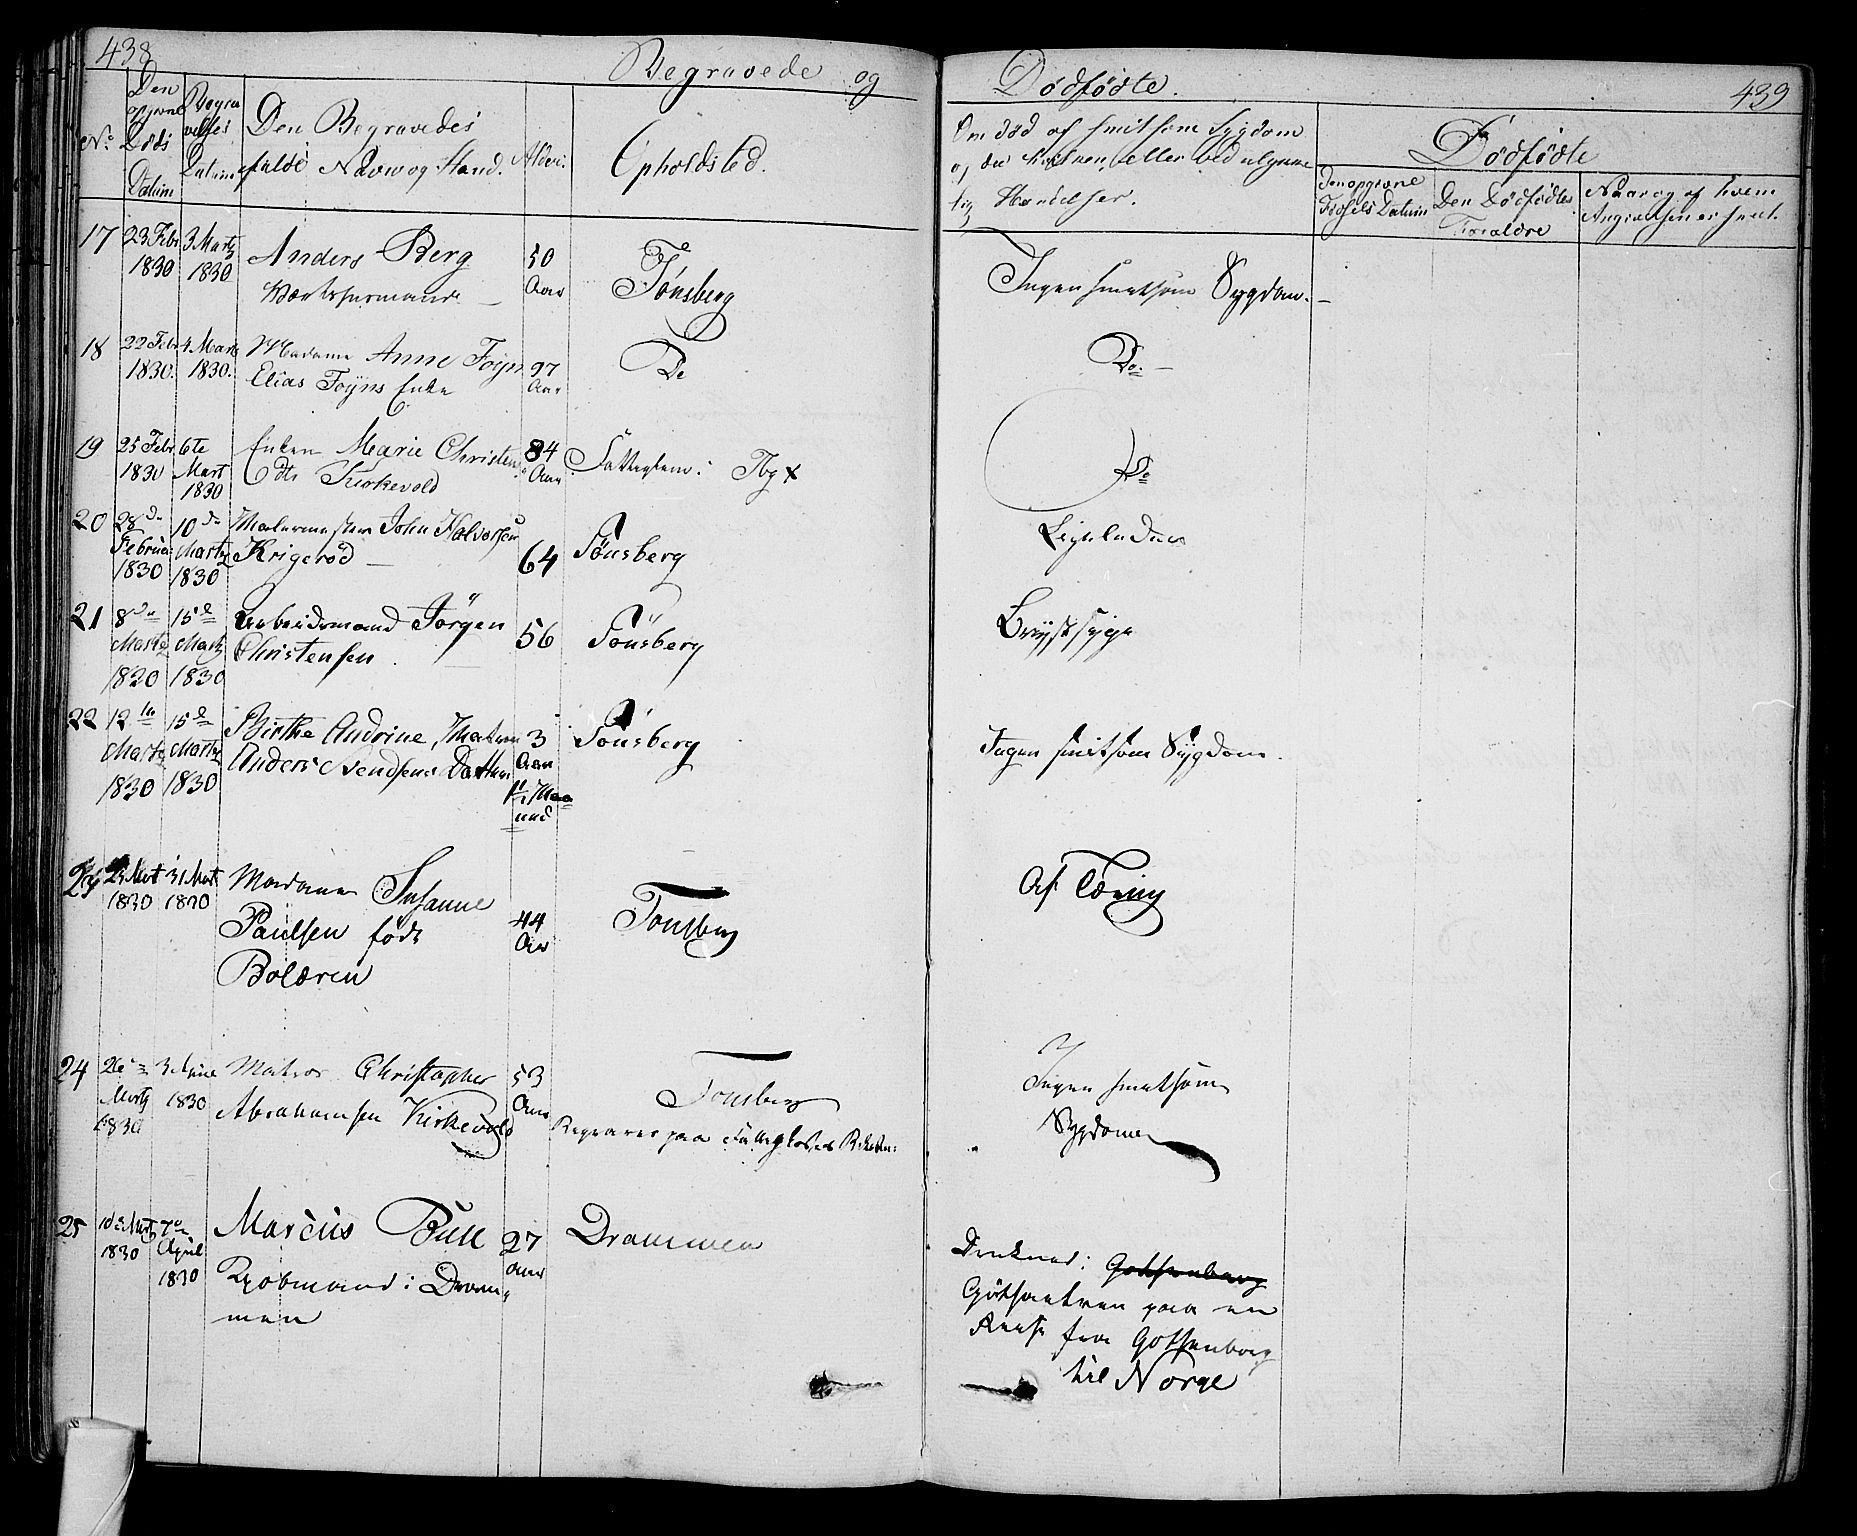 438
Begravede og
Dødfødte.
439
No.
Den opgivne Døds Datum
Begravelses Datum
Den Begravedes fulde Navn og Stand.
Alder.
Opholdsted.
Om død af smitsom Sygdom
Hændelser.
Dødfødte
Den opgivne Fødsels Datum
Den Dødfødtes Forældre
Naar og af hvem
17 23 Febr 1830 3 Martz 1830 Anders Berg
50 Aar Tønsberg Ingen smitsom Sygdom.
18 22 Febr 1830. 4 Marts 1830. Madame Anne Foyn
Elias Foyns Enke 97 Aar Do Do.
19 25 Febr 1830 6te Mart 1830 Enken Marie Christens
Kirkevold 84 Aar Tbg x Do
20 28de Februar 1830 10de Martz 1830 Malermester John Halvorsen
Krigerød 64 Tønsberg
21 8de Martz 1830 15de Martz 1830 Arbeidsmand Jörgen
Christensen 56 Tönsberg Brystsyge
22 12te Martz 1830 15de Martz 1830 Birthe Andrine, Matros
Anders Svendsens Datter 3 Aar 11 Maaned Tönsberg Ingen smitsom Sygdom.
23 23 Mart 1830 31 Mart 1830 Madame Susanne
Paulsen født
Bolæren 44 Aar Tonsberg Af Tæring
24 26de Martz 1830 3 April 1830 Matros Christopher
Abrahamsen Kirkevold 53 Aar Tonsberg
Begraves paa Fattigkassens Bekostn:
Ingen smitsom
Sygdom
25 10de Martz 1830 7de April 1830 Marcus Bull
Kjøbmand i Dram-
men 27 Aar Drammen
Druknet i Gothenborg
paa en
Reise fra Gothenborg
til Norge